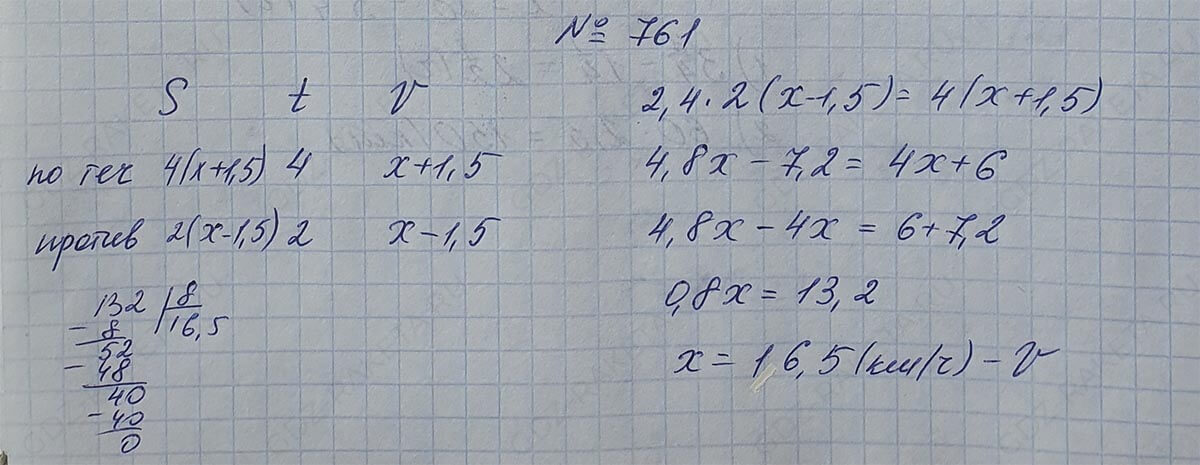 № 761
S t V
по теч 4(x+1,5) 4 x+1,5
против 2(x-1,5) 2 x-1,5
132 | 8
- 8 | 16,5
52
- 48
40
- 40
0
2,4·2(x-1,5)= 4(x+1,5)
4,8x-7,2= 4x+6
4,8x-4x = 6+7,2
0,8x= 13,2
x= 16,5(км/ч) - V